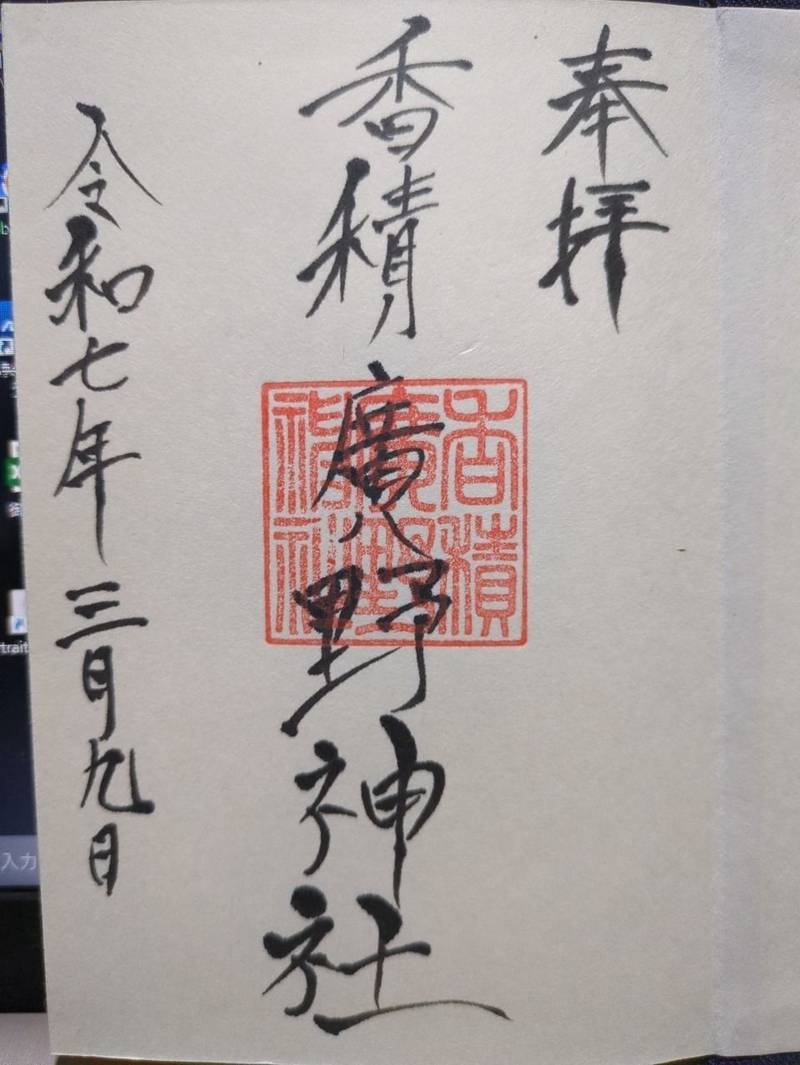 奉拝
香積廣野神社
香積
廣野
神社
令和七年三月九日
入力
trait